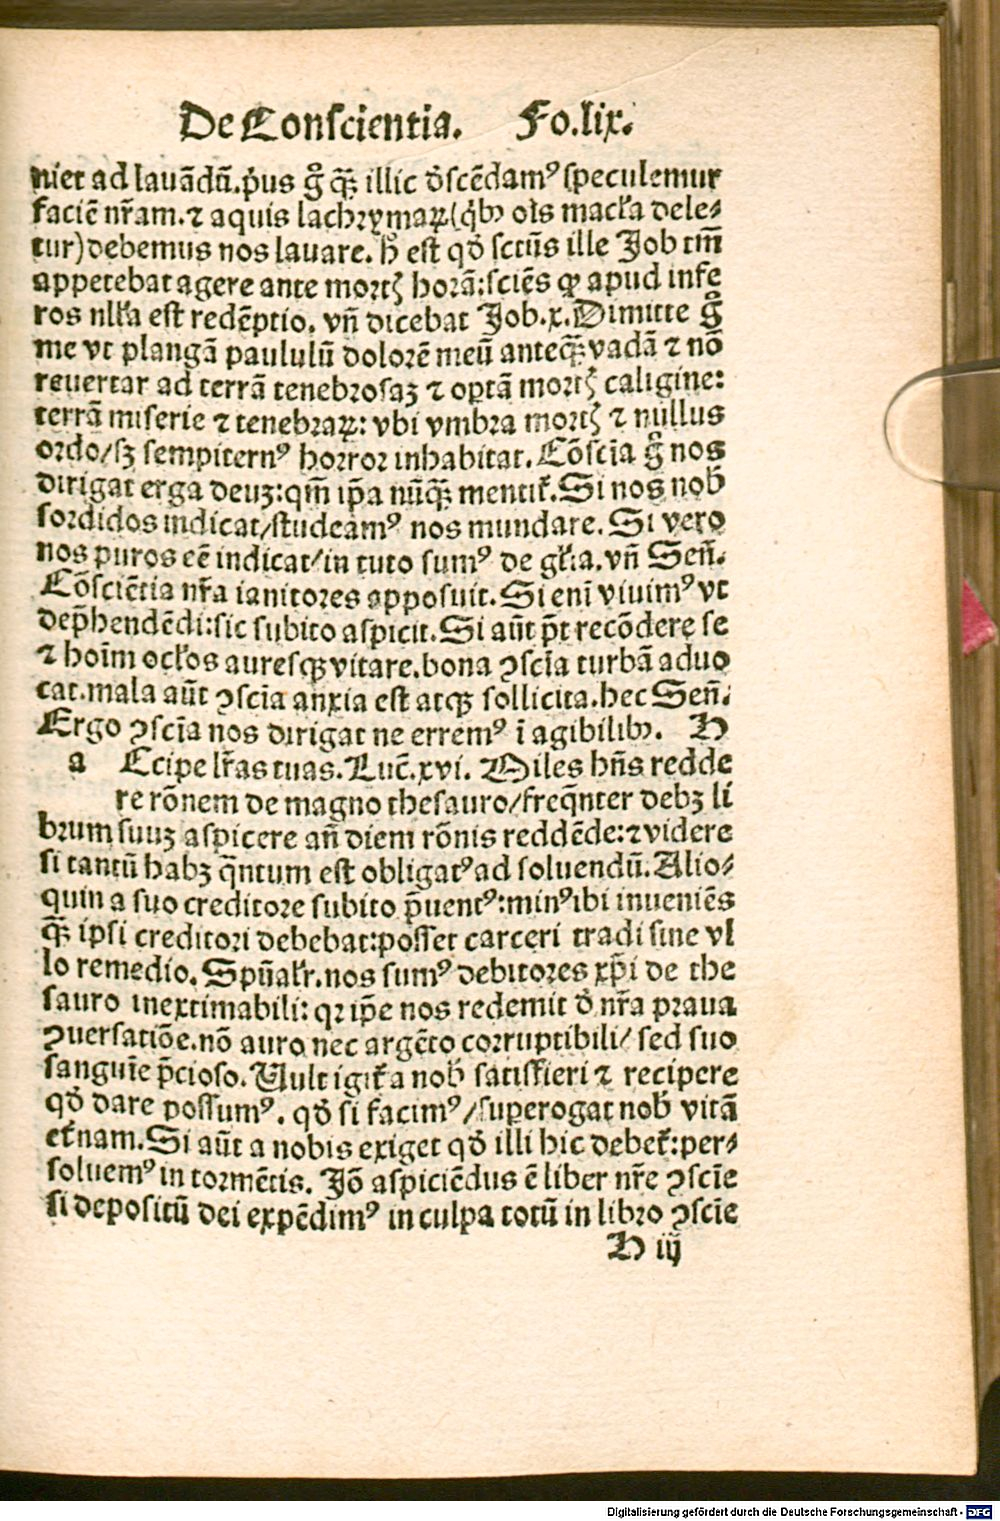 De Conscientia. Fo.lix.
niet ad lauādū.pꝰus gͦ qꝫ illic dͦscēdamꝰ speculemur
faciē nr̄am.⁊ aquis lachrymaꝝ(qͥbꝰ oīs macl̄a dele⸗
tur)debemus nos lauare. hͦ est qđ sctūs ille Job tm̄
appetebat agere ante mortꝭ horā:sciēs ꝙ apud infe
ros nll̄a est redēptio. vn̄ dicebat Job.x.Dimitte gͦ
me vt plangā paululū dolorē meū anteqꝫ vadā ⁊ nō
reuertar ad terrā tenebrosaꝫ ⁊ optā mortꝭ caligine:
terrā miserie ⁊ tenebraꝝ: vbi vmbra mortꝭ ⁊ nullus
ordo/sꝫ sempiternꝰ horror inhabitat. Cōscīa gͦ nos
dirigat erga deuꝫ:qm̄ ip̄a nūqꝫ mentit̄.Si nos nob̄
sordidos indicat/studeamꝰ nos mundare. Si vero
nos puros eē indicat/in tuto sumꝰ de gl̄ia.vn̄ Sen̄.
Cōsciētia nr̄a ianitores apposuit. Si eni viuimꝰ vt
dep̄hendēdi:sic subito aspicit. Si aūt p̄t recōdere se
⁊ hoīm ocl̄os auresqꝫ vitare.bona ꝯscīa turbā aduo
cat.mala aūt ꝯscīa anxia est atqꝫ sollicita.hec Sen̄.
Ergo ꝯscīa nos dirigat ne erremꝰ ī agibilibꝰ. H
a Ccipe lr̄as tuas. Luc̄.xvi. Miles hn̄s redde
re rōnem de magno thesauro/freqn̄ter debꝫ li
brum suuꝫ aspicere an̄ diem rōnis reddēde:⁊ videre
si tantū habꝫ qn̄tum est obligatꝰ ad soluendū.Alio⸗
quin a suo creditore subito p̄uentꝰ:minꝰ ibi inueniēs
qꝫ ipsi creditori debebat:posset carceri tradi sine vl
lo remedio. Spūalr̄.nos sumꝰ debitores xp̄i de the
sauro inextimabili: qꝛ ip̄e nos redemit dͦ nr̄a praua
ꝯuersatiōe.nō auro nec argēto corruptibili/ sed suo
sanguīe p̄cioso. Uult igit̄ a nob̄ satisfieri ⁊ recipere
qđ dare possumꝰ. qđ si facimꝰ/superogat nob̄ vitā
et̄nam. Si aūt a nobis exiget qđ illi hic debet̄:per⸗
soluemꝰ in tormētis. Jō aspiciēdus ē liber nr̄e ꝯscīe
si depositū dei expēdimꝰ in culpa totū in libro ꝯscīe
H iij
Digitalisierung gefördert durch die Deutsche Forschungsgemeinschaft - DFG